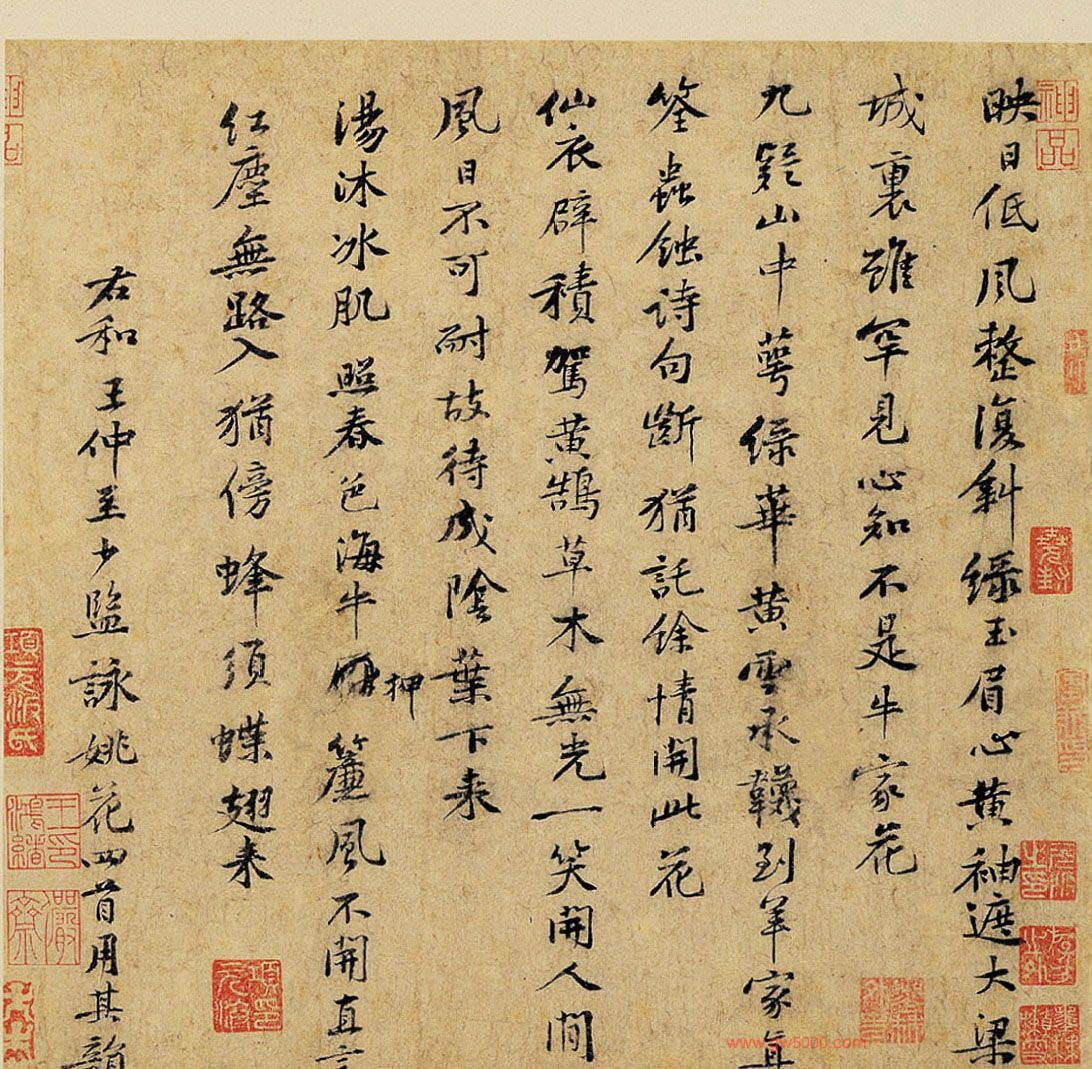 映日低風整復斜綠玉眉心黃袖遮大梁
城裏雖罕見心知不是牛家花
九疑山中萼綠華黃雲承韈到羊家真
筌蟲蝕詩句斷猶託餘情開此花
仙衣辟積駕黃鵠草木無光一笑開人間
風日不可耐故待成陰葉下來
湯沐冰肌照春色海牛押簾風不開直言
紅塵無路入猶傍蜂須蝶翅來
右和王仲至少監詠姚花四首用其韻
神品